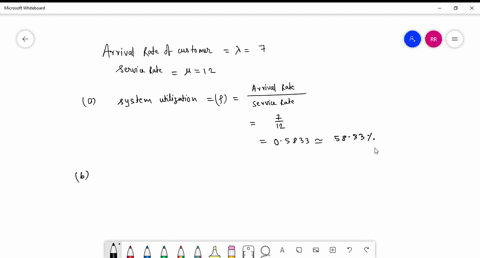 Microsoft Whiteboard
RR
Arrival Rate of customer = λ = 7
Service Rate = μ = 12
(a) system utilization = (ρ) = Arrival Rate / Service Rate
= 7/12
= 0.5833 ≃ 58.33%.
(b)